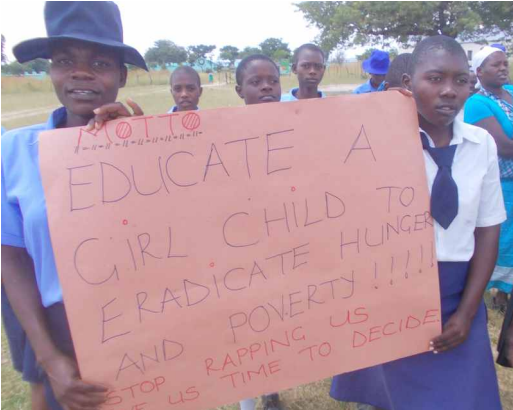 MOTTO
EDUCATE A
GIRL CHILD TO
ERADICATE HUNGER
AND POVERTY!!!!!
STOP RAPPING US
US TIME TO DECIDE.